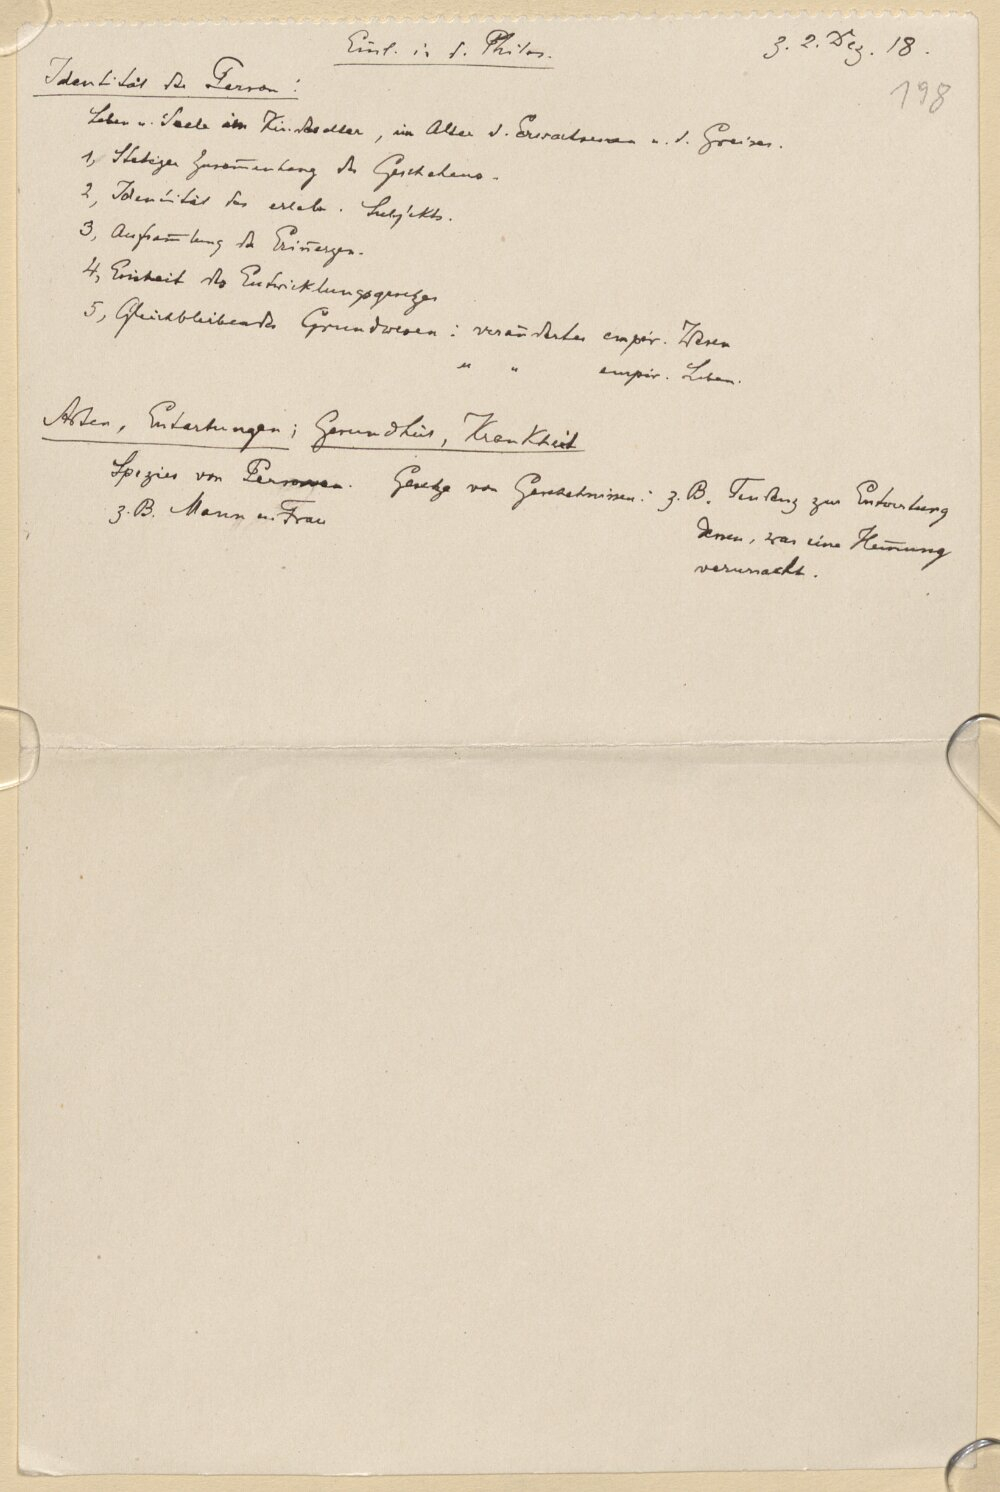 Einl. in d. Philos.
z. 2. Dez. 18.
198
Identität der Person:
Leben u. Seele im Kindesalter, im Alter d. Erwachsenen u. d. Greises.
1, Stetiger Zusam̄enhang des Geschehens.
2, Identität des erleb. Subjekts.
3, Aufsam̄lung der
4, Einheit des Entwicklungsgesetzes
5, Gleichbleibendes Grundwesen: verändertes empir. Wesen
" " empir. Leben.
Arten, Entartungen; Gesundheit, Krankheit
Spezies von Personen. Gesetze von Geschehnissen: z. B. Tendenz zur
z. B. Mann u. Frau
dessen, was eine Hem̄ung
verursacht.